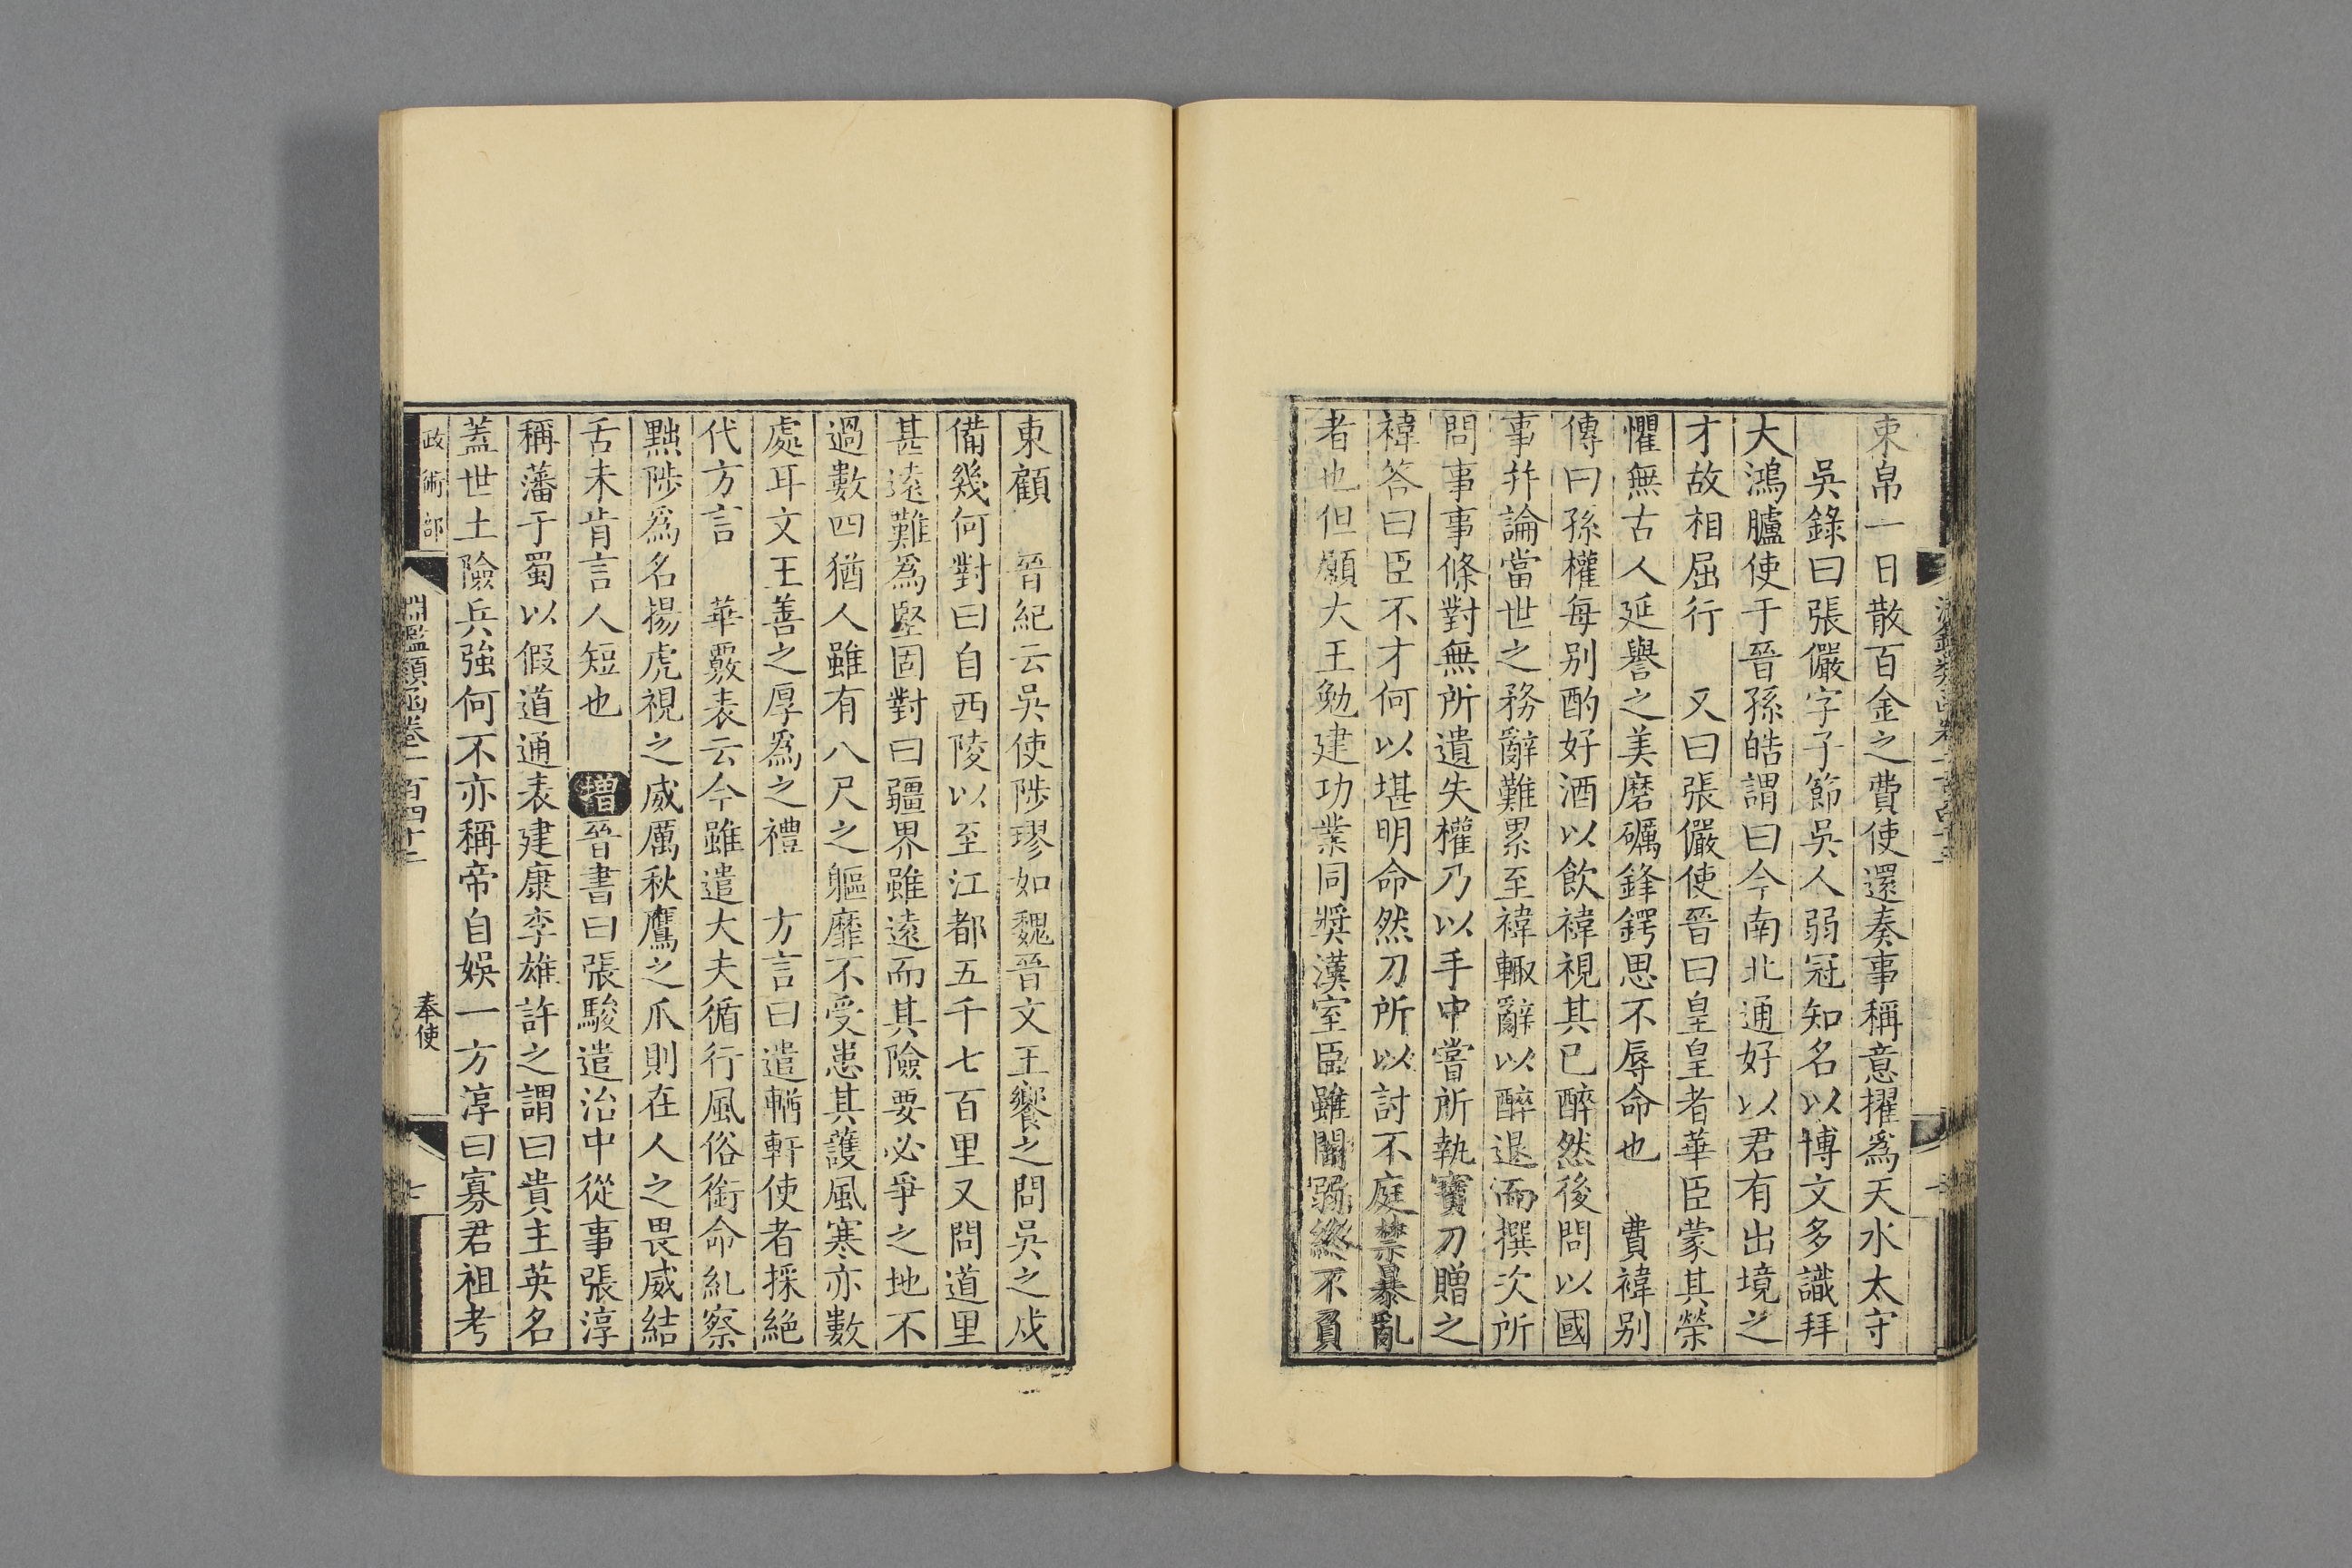 束帛一日散百金之費使還奏事稱意擢爲天水太守
吳錄曰張儼字子節吳人弱冠知名以博文多識拜
大鴻臚使于晉孫皓謂曰今南北通好以君有出境之
才故相屈行　又曰張儼使晉曰皇皇者華臣蒙其榮
懼無古人延譽之美磨礪鋒鍔思不辱命也　費禕别
傳曰孫權每别酌好酒以飲禕視其已醉然後問以國
事幷論當世之務辭難累至禕輙辭以醉退而撰次所
問事事條對無所遺失權乃以手中嘗所執寶刀贈之
禕答曰臣不才何以堪明命然刀所以討不庭禁暴亂
者也但願大王勉建功業同奬漢室臣雖闇弱終不負
東顧　晉紀云吳使陟璆如魏晉文王饗之問吳之戍
備幾何對曰自西陵以至江都五千七百里又問道里
甚遠難爲堅固對曰疆界雖遠而其險要必爭之地不
過數四猶人雖有八尺之軀靡不受患其護風寒亦數
處耳文王善之厚爲之禮　方言曰遣輶軒使者採絶
代方言　華覈表云今雖遣大夫循行風俗銜命糺察
黜陟爲名揚虎視之威厲秋鷹之爪則在人之畏威結
舌未肯言人短也　增晉書曰張駿遣治中從事張淳
稱藩于蜀以假道通表建康李雄許之謂曰貴主英名
蓋世土險兵強何不亦稱帝自娛一方淳曰寡君祖考
政術部
淵鑑類函卷一百四十二
奉使
七